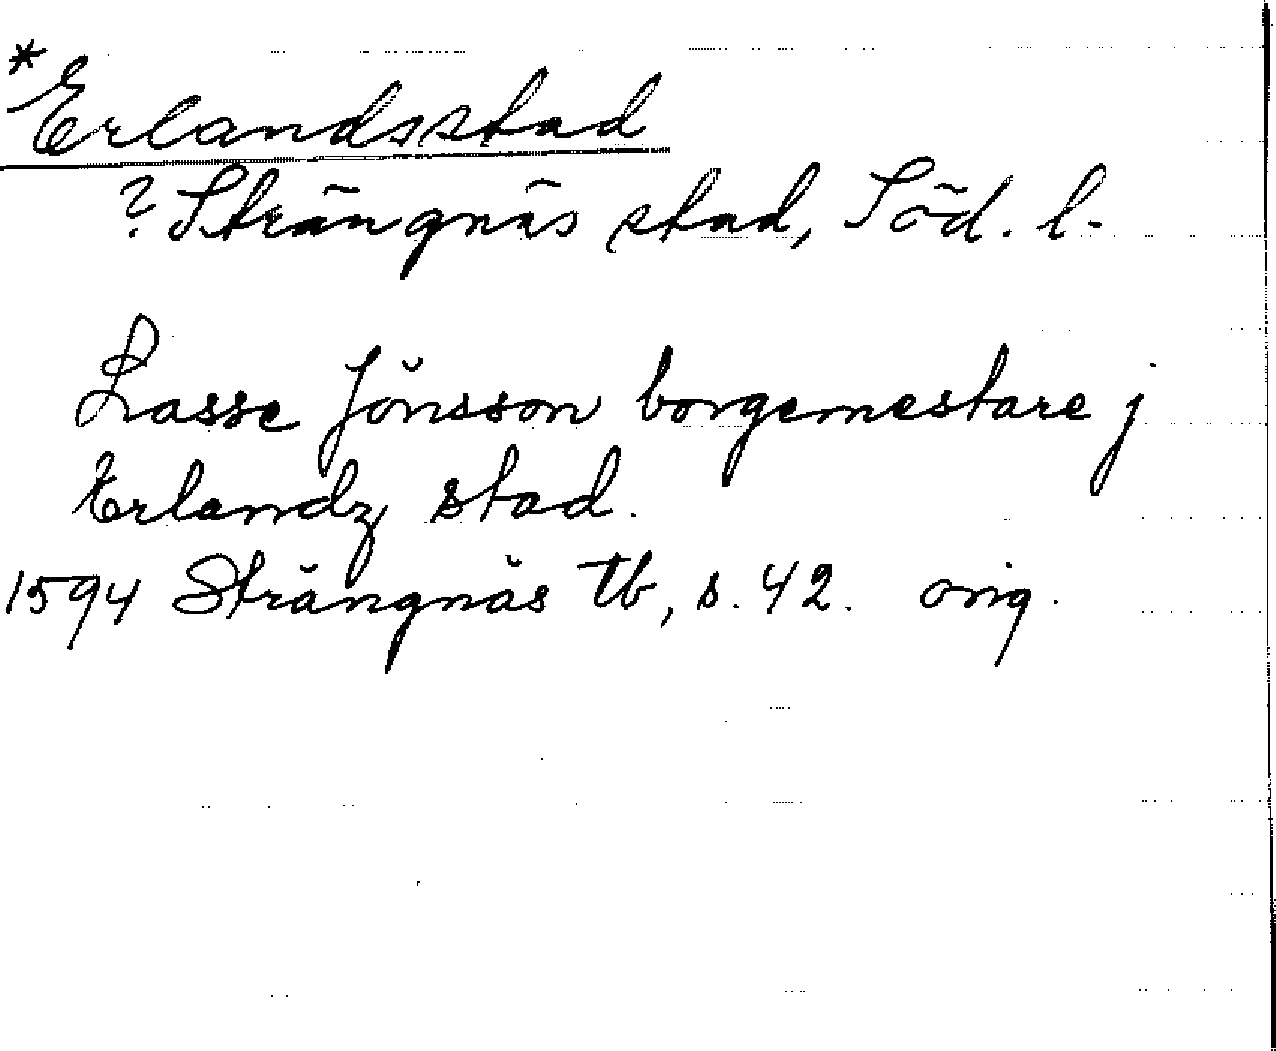 *Erlandsstad
? Strängnäs stad, Söd. l.
Lasse Jönsson borgemestare j
Erlandz stad.
1594 Strängnäs tb, s. 42. orig.